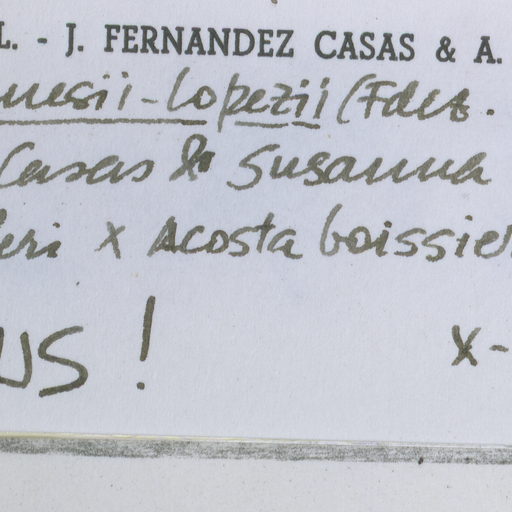 L. - J. FERNANDEZ CASAS & A.
uesii-lopezii (Fdez.
Casas & Susanna
eri x Acosta boissier
US !
X-